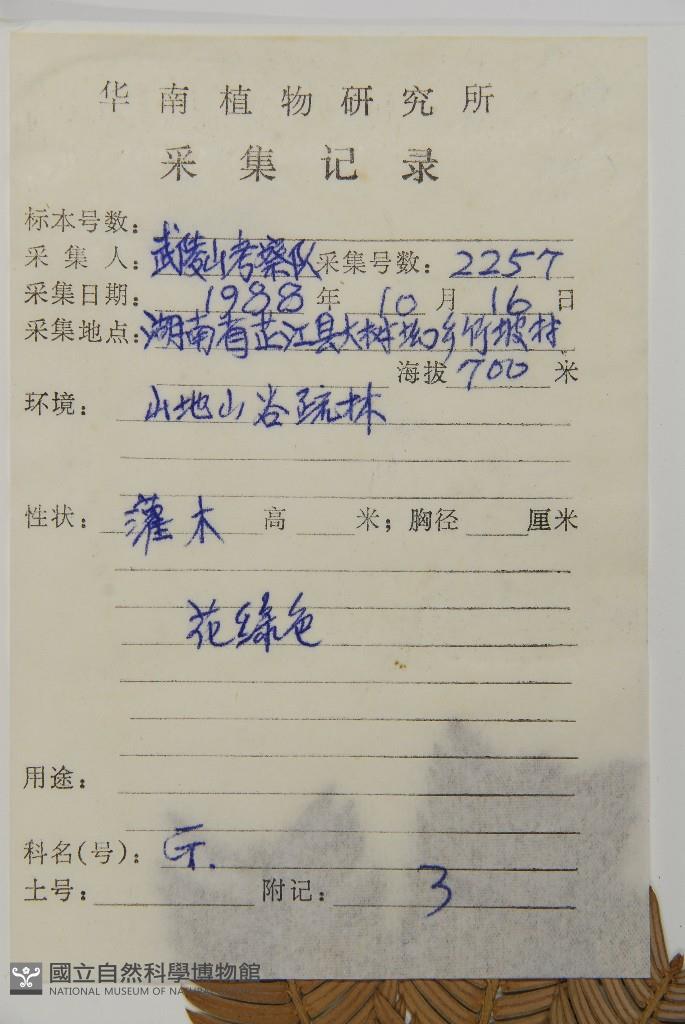 华南植物研究所
采集记录
标本号数：
采集人：武陵山考察队 采集号数：2257
采集日期：1988年10月16日
采集地点：湖南省芷江县大树坳乡竹坡村
海拔 700 米
环境：山地山谷疏林
性状：灌木 高 米；胸径 厘米
花绿色
用途：
科名(号)：G.
土号： 附记：3
國立自然科學博物館
NATIONAL MUSEUM OF